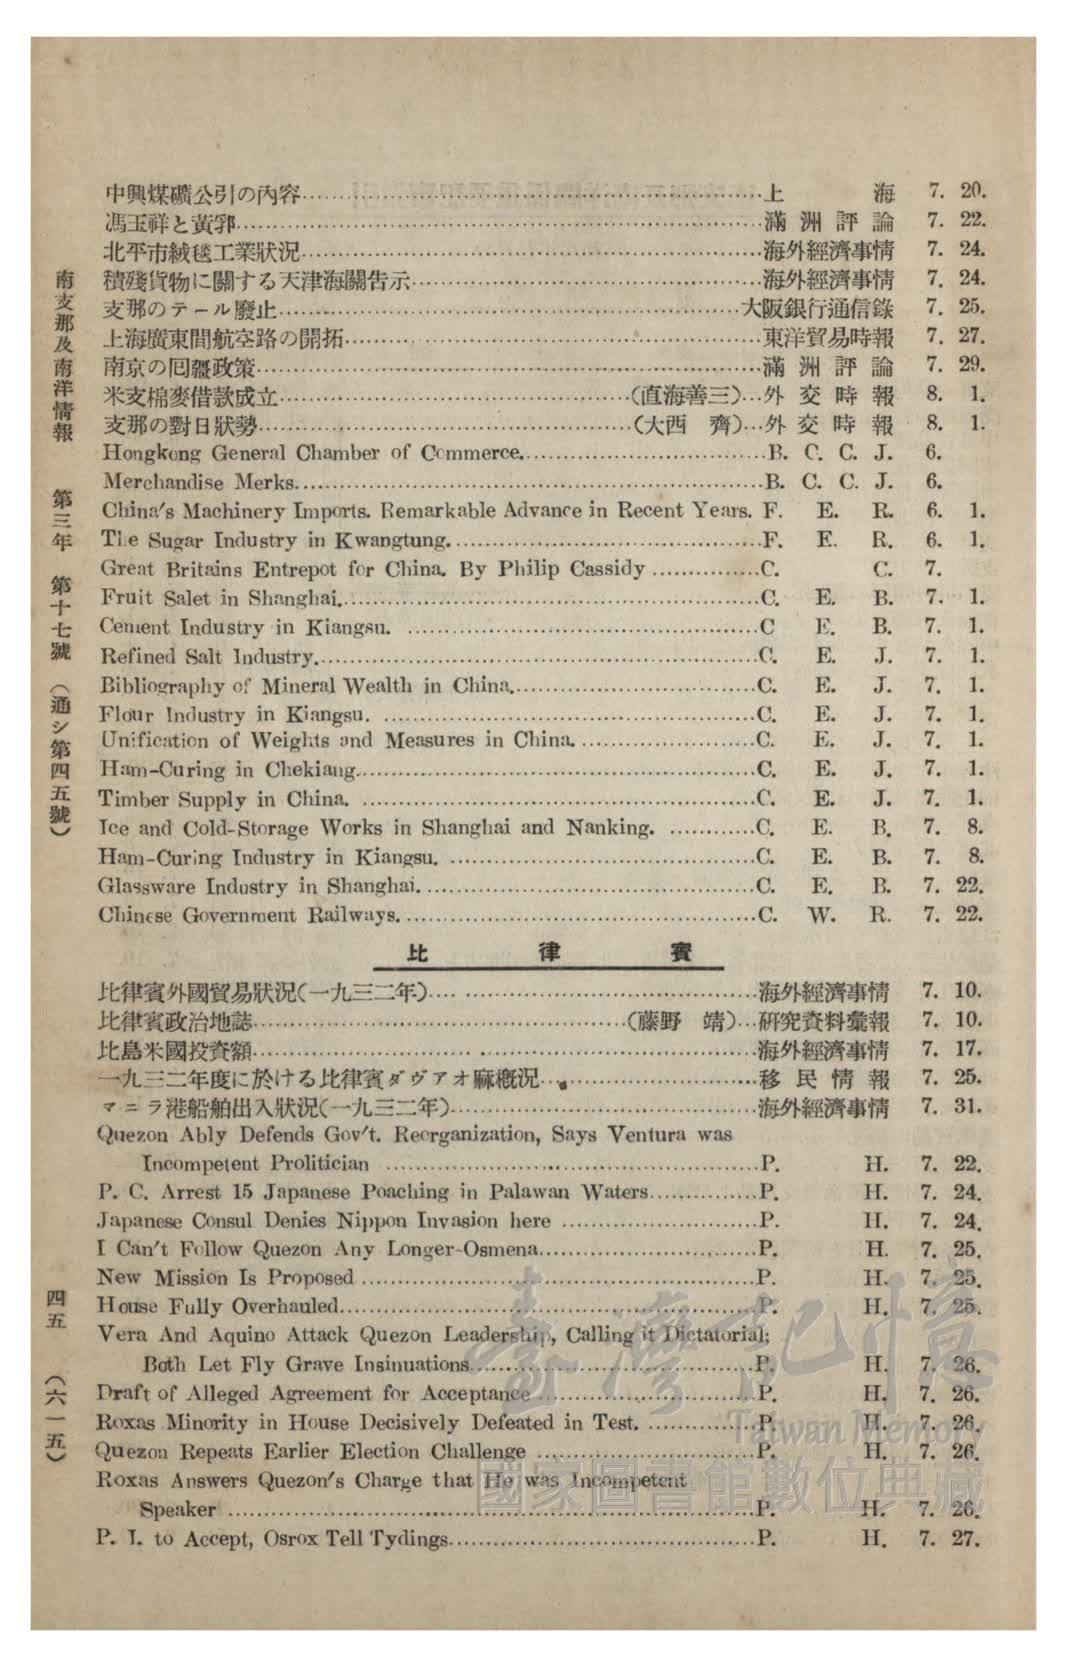 中興煤礦公引の內容……上海 7. 20.
馮玉祥と黃郛……滿洲評論 7. 22.
北平市絨毯工業狀況……海外經濟事情 7. 24.
積殘貨物に關する天津海關吿示……海外經濟事情 7. 24.
支那のテール廢止……大阪銀行通信錄 7. 25.
上海廣東間航空路の開拓……東洋貿易時報 7. 27.
南京の回疆政策……滿洲評論 7. 29.
米支棉麥借款成立……(直海善三)…外交時報 8. 1.
支那の對日狀勢……(大西 齊)…外交時報 8. 1.
Hongkong General Chamber of Commerce.……B. C. C. J. 6.
Merchandise Merks.……B. C. C. J. 6.
China's Machinery Imports. Remarkable Advance in Recent Years. F. E. R. 6. 1.
The Sugar Industry in Kwangtung.……F. E. R. 6. 1.
Great Britains Entrepot for China. By Philip Cassidy……C. C. 7.
Fruit Salet in Shanghai.……C. E. B. 7. 1.
Cement Industry in Kiangsu. ……C E. B. 7. 1.
Refined Salt Industry.……C. E. J. 7. 1.
Bibliography of Mineral Wealth in China.……C. E. J. 7. 1.
Flour Industry in Kiangsu. ……C. E. J. 7. 1.
Unification of Weights and Measures in China.……C. E. J. 7. 1.
Ham-Curing in Chekiang……C. E. J. 7. 1.
Timber Supply in China. ……C. E. J. 7. 1.
Ice and Cold-Storage Works in Shanghai and Nanking. ……C. E. B. 7. 8.
Ham-Curing Industry in Kiangsu. ……C. E. B. 7. 8.
Glassware Industry in Shanghai.……C. E. B. 7. 22.
Chinese Government Railways.……C. W. R. 7. 22.
比律賓
比律賓外國貿易狀況(一九三二年)……海外經濟事情 7. 10.
比律賓政治地誌……(藤野 靖)…硏究資料彙報 7. 10.
比島米國投資額……海外經濟事情 7. 17.
一九三二年度に於ける比律賓ダヴァオ麻槪況……移民情報 7. 25.
マニラ港船舶出入狀況(一九三二年)……海外經濟事情 7. 31.
Quezon Ably Defends Gov't. Reorganization, Says Ventura was
Incompetent Prolitician ……P. H. 7. 22.
P. C. Arrest 15 Japanese Poaching in Palawan Waters……P. H. 7. 24.
Japanese Consul Denies Nippon Invasion here ……P. H. 7. 24.
I Can't Follow Quezon Any Longer-Osmena……P. H. 7. 25.
New Mission Is Proposed ……P. H. 7. 25.
House Fully Overhauled……P. H. 7. 25.
Vera And Aquino Attack Quezon Leadership, Calling it Dictatorial;
Both Let Fly Grave Insinuations……P. H. 7. 26.
Draft of Alleged Agreement for Acceptance……P. H. 7. 26.
Roxas Minority in House Decisively Defeated in Test. ……P. H. 7. 26.
Quezon Repeats Earlier Election Challenge ……P. H. 7. 26.
Roxas Answers Quezon's Charge that He was Incompetent
Speaker ……P. H. 7. 26.
P. I. to Accept, Osrox Tell Tydings……P. H. 7. 27.
南支那及南洋情報 第三年 第十七號 (通シ第四五號)
四五 (六一五)
臺灣記憶
Taiwan Memory
國家圖書館數位典藏